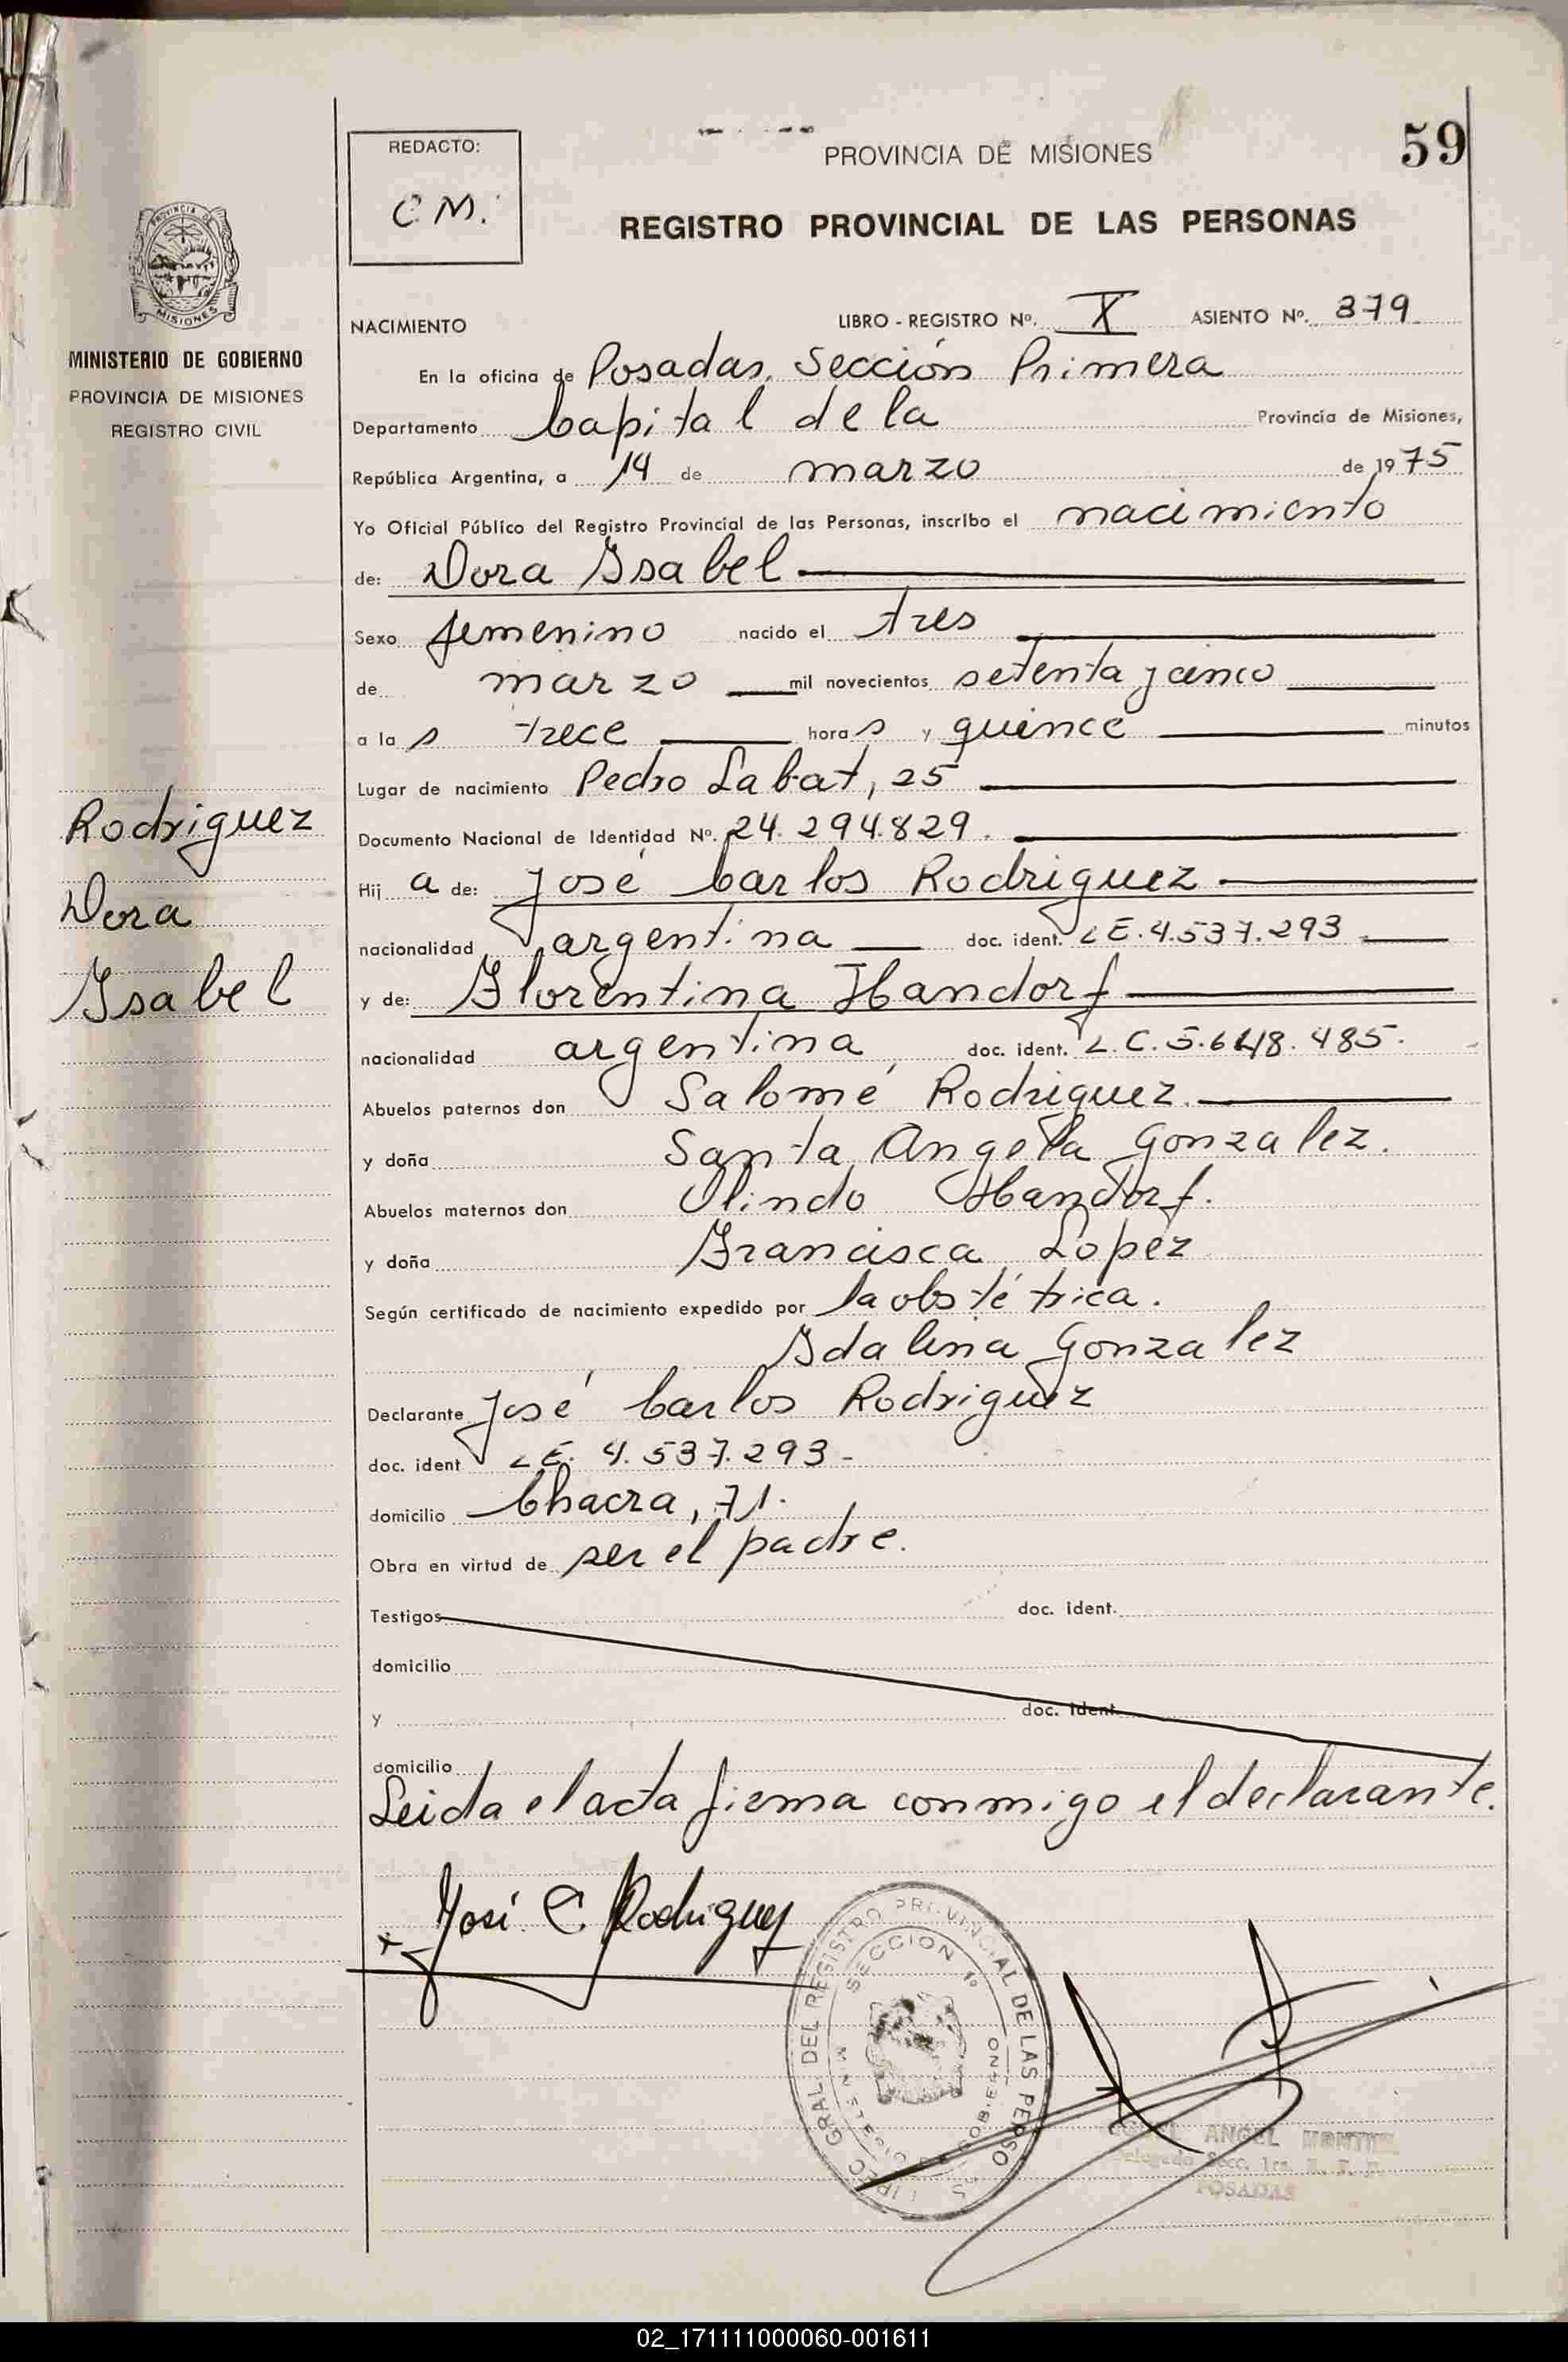 59
REDACTO:
C M.
PROVINCIA DE MISIONES
REGISTRO PROVINCIAL DE LAS PERSONAS
PROVINCIA DE
MISIONES
MINISTERIO DE GOBIERNO
PROVINCIA DE MISIONES
REGISTRO CIVIL
NACIMIENTO LIBRO - REGISTRO Nº. X ASIENTO Nº. 379
En la oficina de Posadas, Sección Primera
Departamento Capital de la Provincia de Misiones,
República Argentina, a 14 de marzo de 1975
Yo Oficial Público del Registro Provincial de las Personas, inscribo el nacimiento
de: Dora Isabel
Sexo femenino nacido el tres
de marzo mil novecientos setenta y cinco
a la s trece hora s y quince minutos
Lugar de nacimiento Pedro Labat, 25
Documento Nacional de Identidad Nº. 24.294.829.
Rodriguez
Dora
Isabel
Hij a de: José Carlos Rodriguez
nacionalidad argentina doc. ident. L E. 4.537.293
y de: Florentina Handorf
nacionalidad argentina doc. ident. L. C. 5.648.485.
Abuelos paternos don Salomé Rodriguez.
y doña Santa Angela Gonzalez.
Abuelos maternos don Olindo Handorf.
y doña Francisca Lopez
Según certificado de nacimiento expedido por la obstétrica.
Idalina Gonzalez
Declarante José Carlos Rodriguez
doc. ident L E. 4.537.293-
domicilio Chacra, 71.
Obra en virtud de ser el padre.
Testigos doc. ident.
domicilio
y doc. ident.
domicilio
Leida el acta firma conmigo el declarante.
José C Rodriguez
GRAL DEL REGISTRO PROVINCIAL DE LAS PERSO
SECCION 1º
GOBIERNO
ANGEL
Delegado Secc. 1ra.
POSADAS
02_171111000060-001611